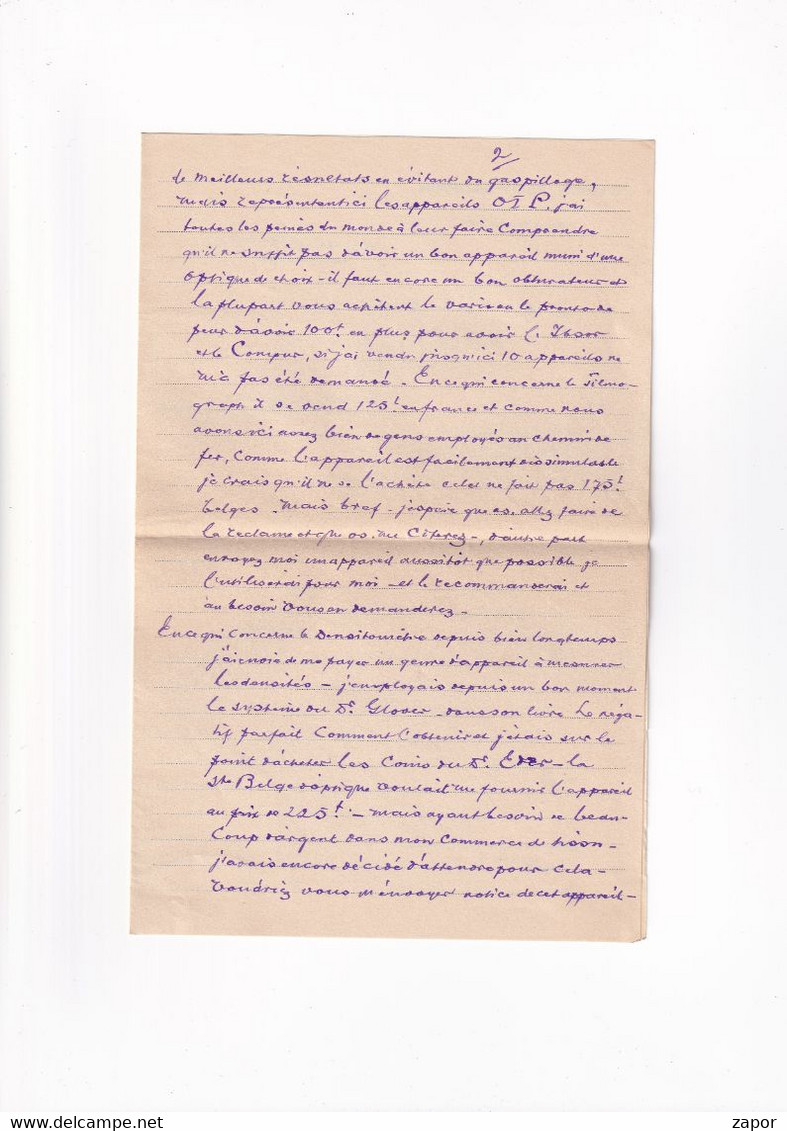 2/
de meilleurs résultats en évitant du gaspillage,
mais représentant ici les appareils O T P. j'ai
toutes les peines du monde à leur faire comprendre
qu'il ne suffit pas d'avoir un bon appareil muni d'une
optique de choix - il faut encore un bon obturateur et
la plupart vous achètent le vario ou le pronto de
peur d'avoir 100f en plus pour avoir le Ibsor
et le Compur, si j'ai vendu jusqu'ici 10 appareils ne
m'a pas été demandé. En ce qui concerne le filmo-
graph il se vend 125f en france et comme nous
avons ici assez bien de gens employés au chemin de
fer, comme l'appareil est facilement dissimulable
je crais qu'il ne se l'achète cela ne fait pas 175f
belges. mais bref - j'espère que allez faire de
la réclame et que me citerez -, d'autre part
envoyez moi un appareil aussitôt que possible je
l'utiliserai pour moi - et le recommanderai et
au besoin vous en demanderez -
En ce qui concerne le Densitomètre depuis bien longtemps
j'ai envie de me payer un genre d'appareil à mesurer
les densités - j'employais depuis un bon moment
le système du Dr Glover dans son livre Le néga-
tif parfait Comment l'obtenir et j'étais sur le
point d'acheter les Coins du Dr. Eder - la
Sté Belge d'optique voulait me fournir l'appareil
au prix de 225f. - mais ayant besoin de beau-
coup d'argent dans mon commerce de
j'avais encore décidé d'attendre pour cela -
Voudriez vous m'envoyer notice de cet appareil -
zapor
delcampe.net